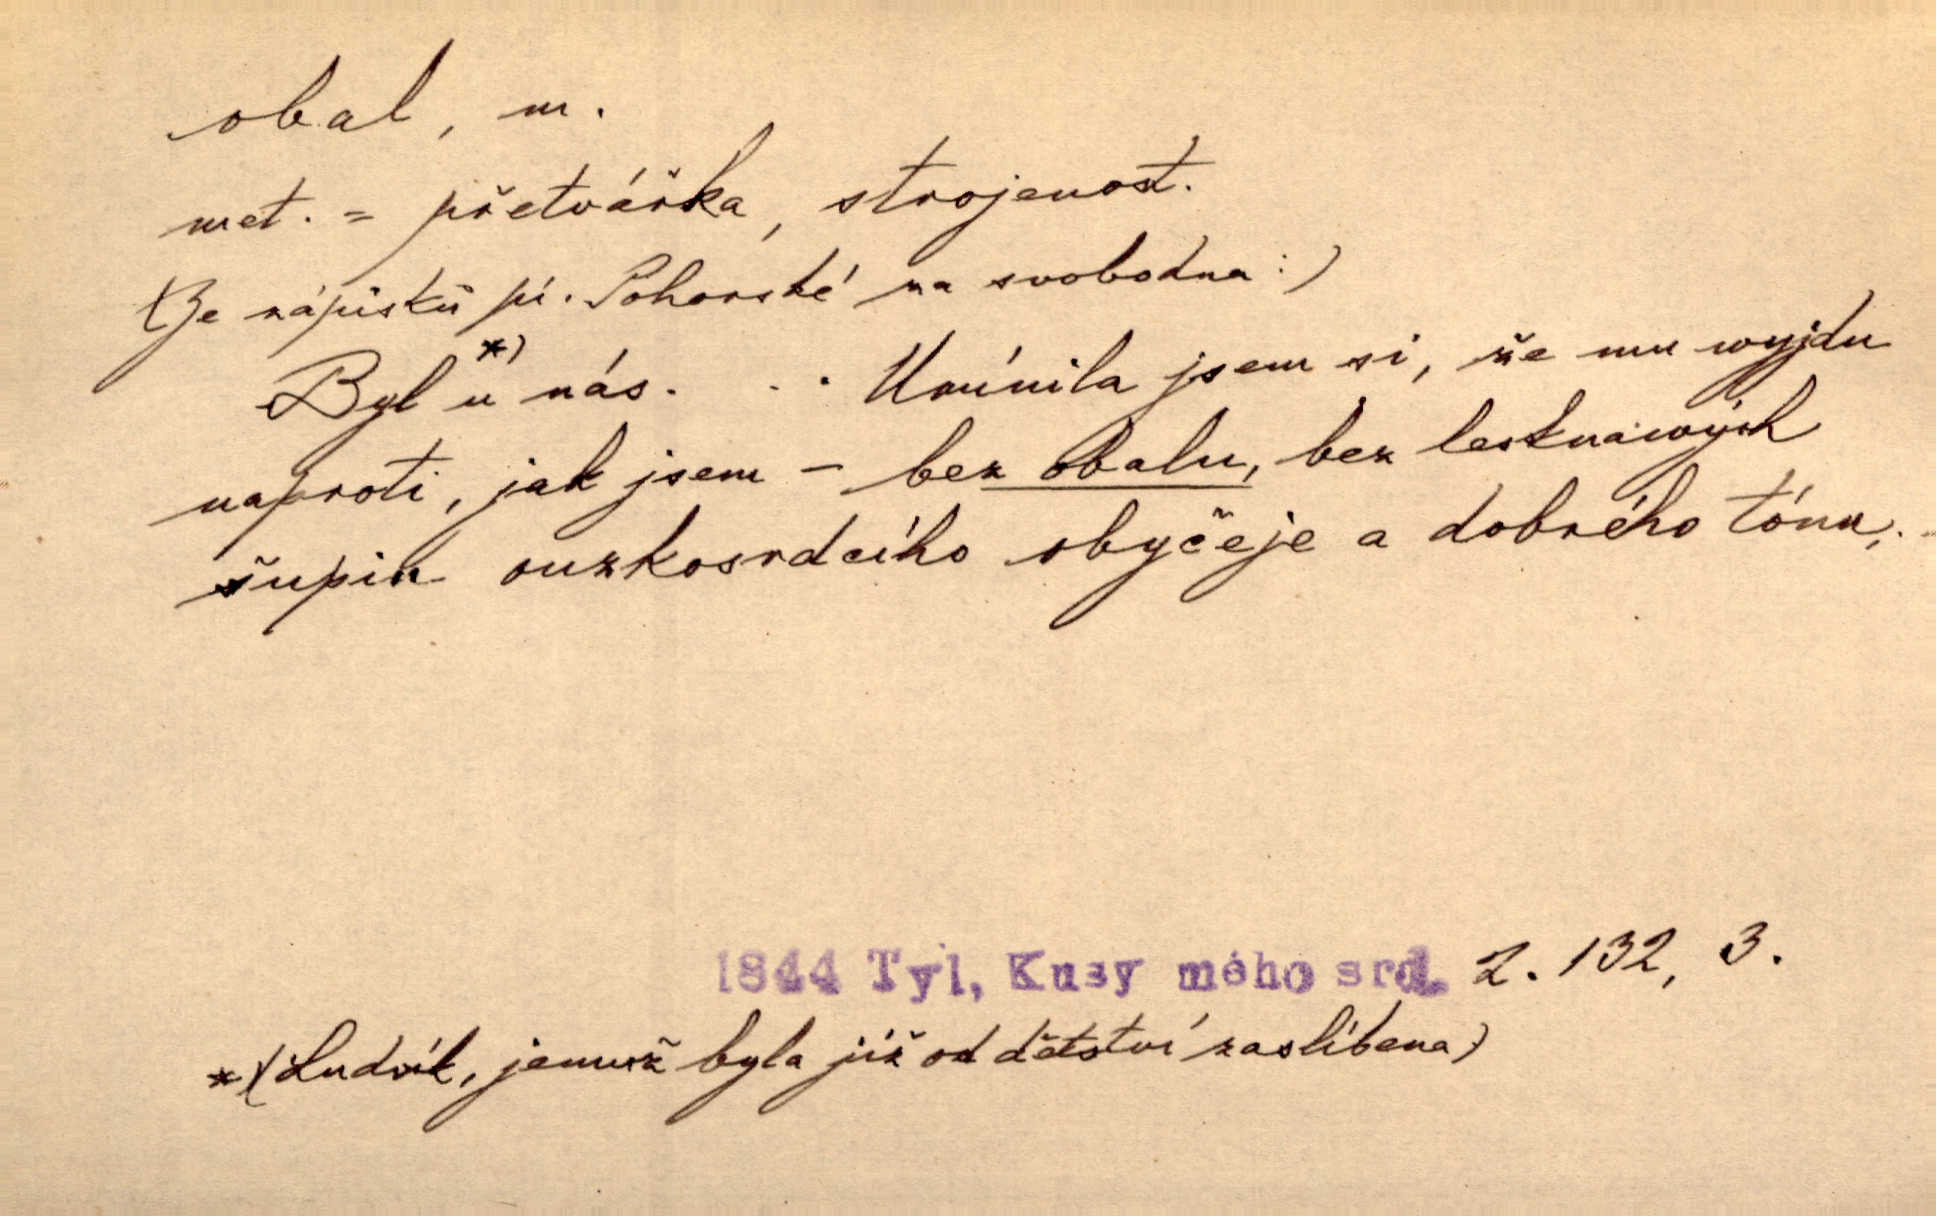 obal, m.
met. = přetvářka, strojenost.
(Ze zápisků pí. Pohorské za svobodna:)
Byl *) u nás. . . Umínila jsem si, že mu wyjdu
naproti, jak jsem – bez obalu, bez lesknawých
šupin ouzkosrdcího obyčeje a dobrého tónu,.
1844 Tyl, Kusy mého srd. 2. 132, 3.
*(Ludvík, jemuž byla již od dětství zaslíbena)